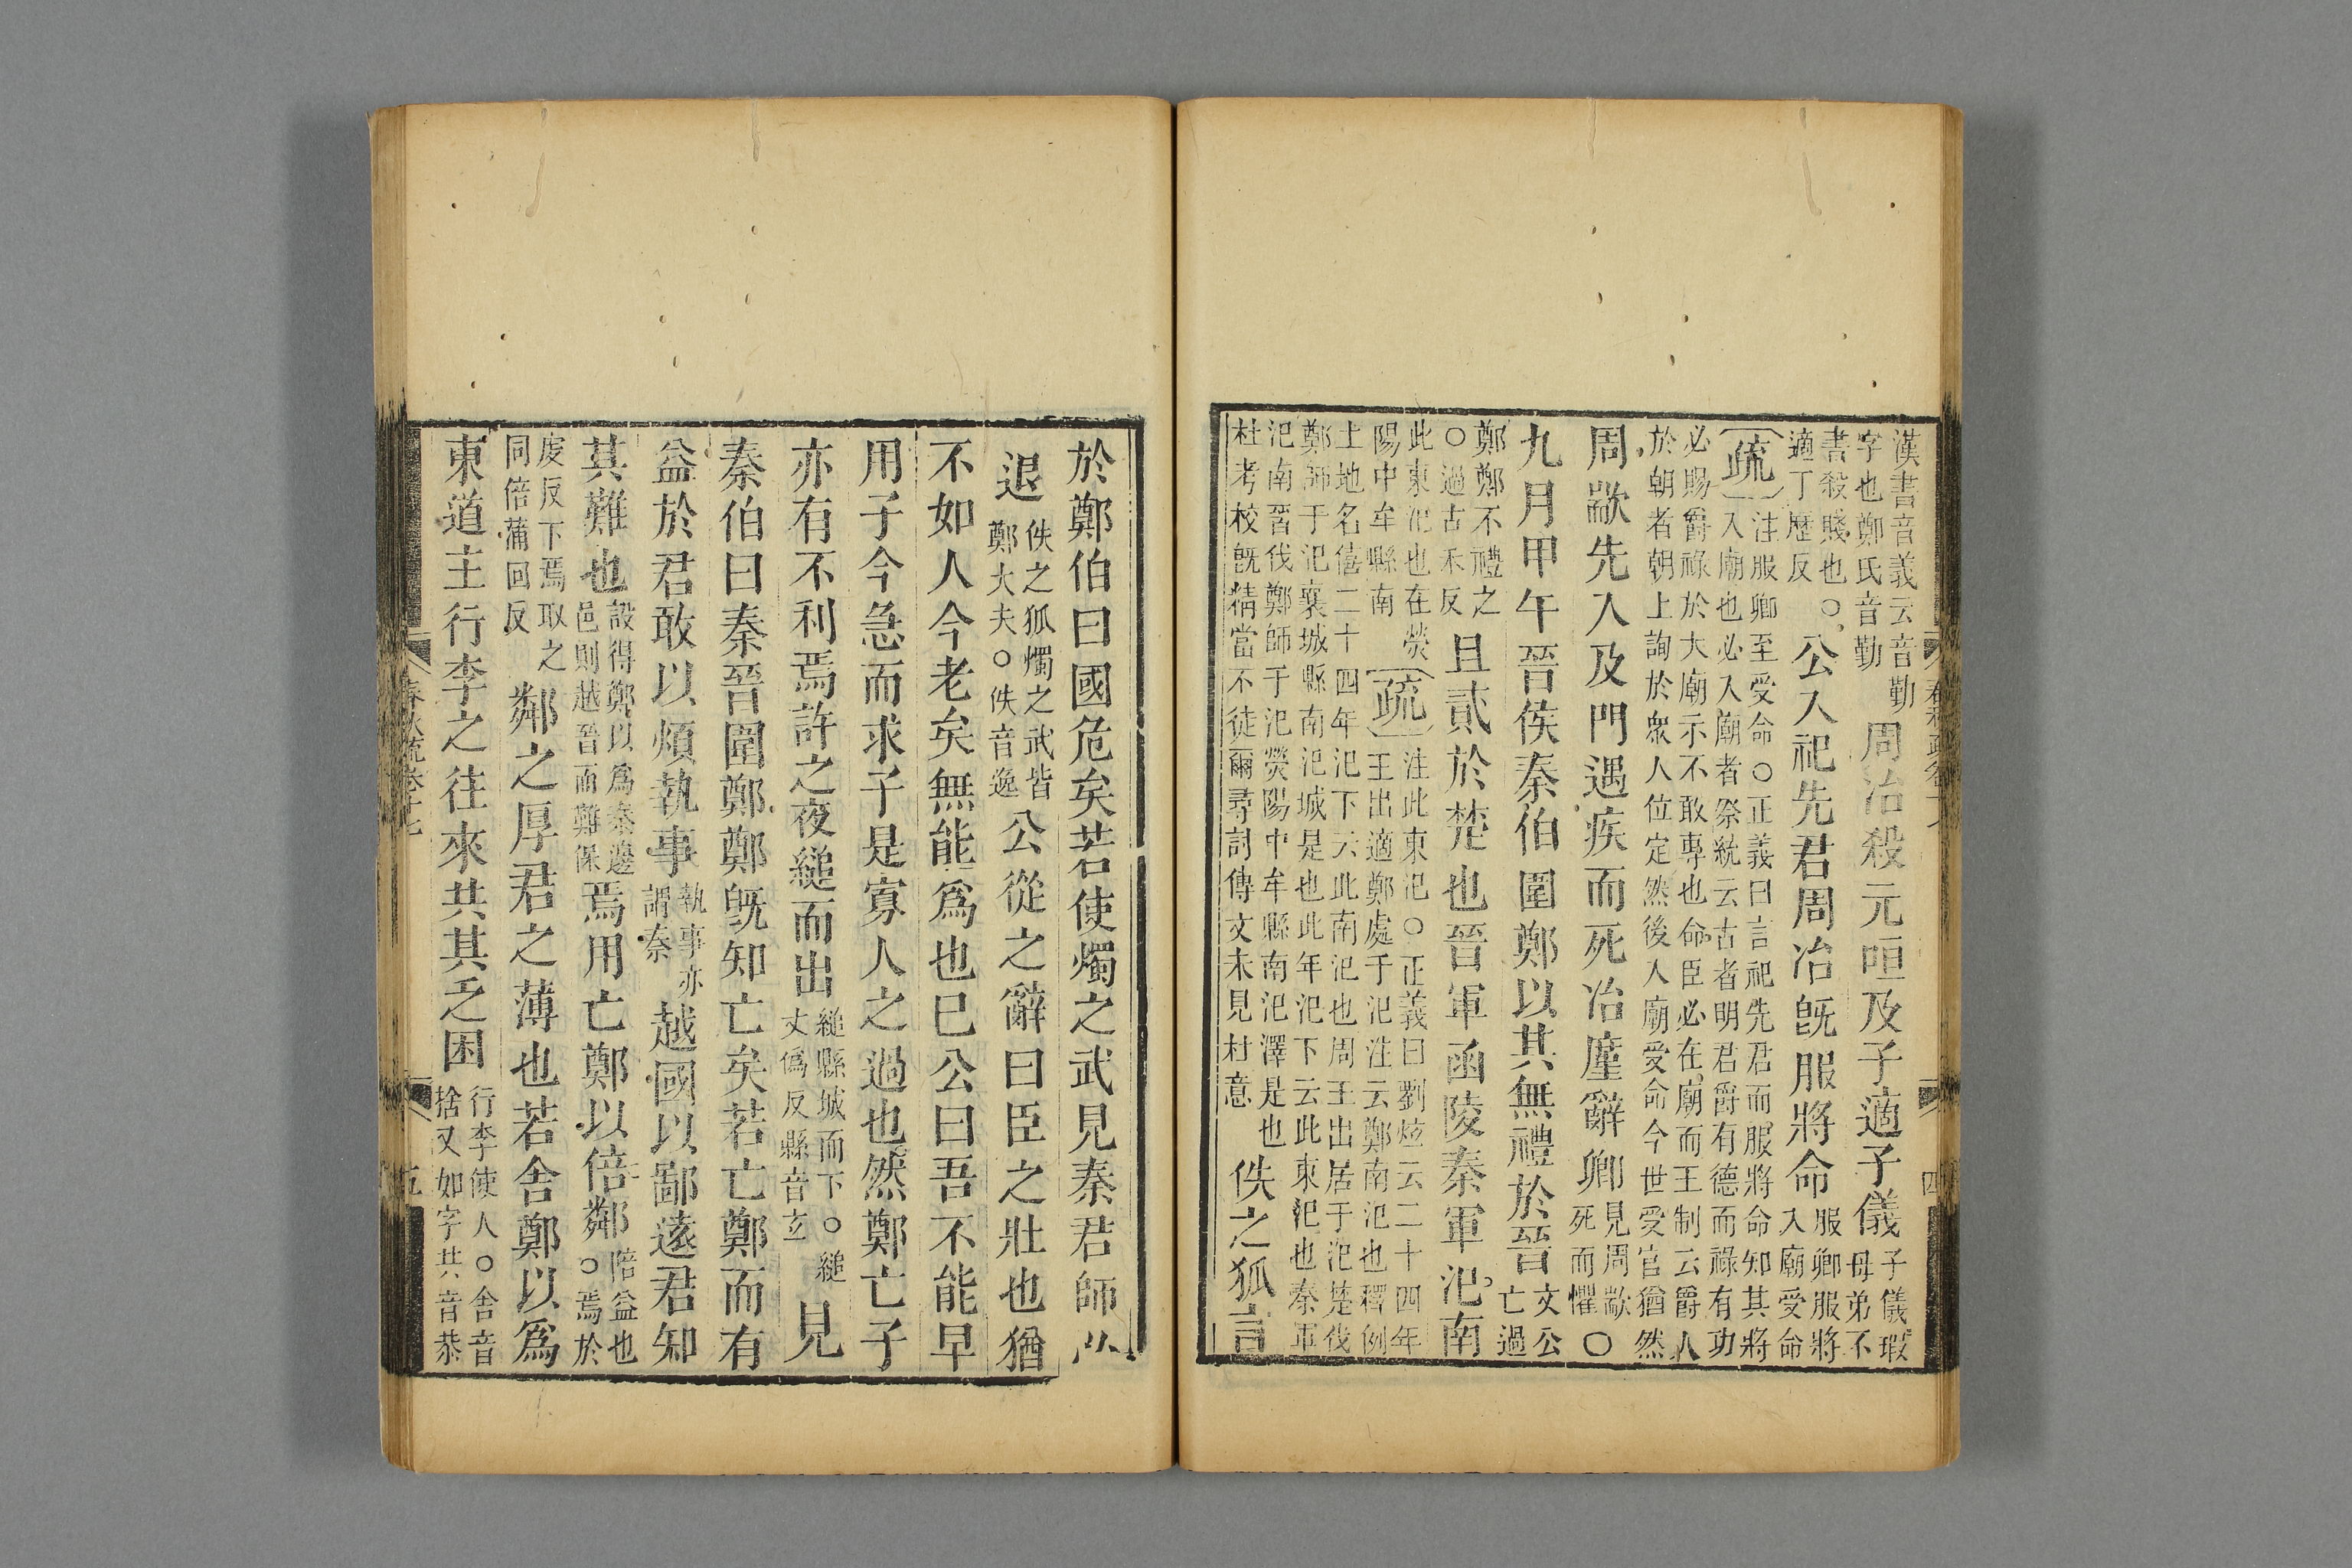 漢書音義云音勤字也鄭氏音勤周冶殺元咺及子適子儀子儀瑕母弟不
書殺賤也○適丁歷反公入祀先君周冶旣服將命服卿服將入廟受命
疏注服卿至受命○正義曰言祀先君而服將命知其將入廟也必入廟者祭統云古者明君爵有德而祿有功
必賜爵祿於大廟示不敢專也命臣必在廟而王制云爵人於朝者朝上詢於衆人位定然後入廟受命今世受官猶然
周歂先入及門遇疾而死冶廑辭卿見周歂死而懼○
九月甲午晉侯秦伯圍鄭以其無禮於晉文公亡過
鄭鄭不禮之○過古禾反且貳於楚也晉軍函陵秦軍汜南
此東汜也在熒陽中牟縣南疏注此東汜○正義曰劉炫云二十四年王出適鄭處于汜注云鄭南汜也釋例
土地名僖二十四年汜下云此南汜也周王出居于汜楚伐鄭師于汜襄城縣南汜城是也此年汜下云此東汜也秦軍
汜南晉伐鄭師于汜熒陽中牟縣南汜澤是也杜考校旣精當不徒爾尋討傳文未見杜意佚之狐言
於鄭伯曰國危矣若使燭之武見秦君師必
退佚之狐燭之武皆鄭大夫○佚音逸公從之辭曰臣之壯也猶
不如人今老矣無能爲也已公曰吾不能早
用子今急而求子是寡人之過也然鄭亡子
亦有不利焉許之夜縋而出縋縣城而下○縋丈僞反縣音玄見
秦伯曰秦晉圍鄭鄭旣知亡矣若亡鄭而有
益於君敢以煩執事執事亦謂秦越國以鄙遠君知
其難也設得鄭以爲秦邊邑則越晉而難保焉用亡鄭以倍鄰陪益也○焉於
虔反下焉取之同倍蒲回反鄰之厚君之薄也若舍鄭以爲
東道主行李之往來共其乏困行李使人○舍音捨又如字共音恭
春秋疏卷十七
五